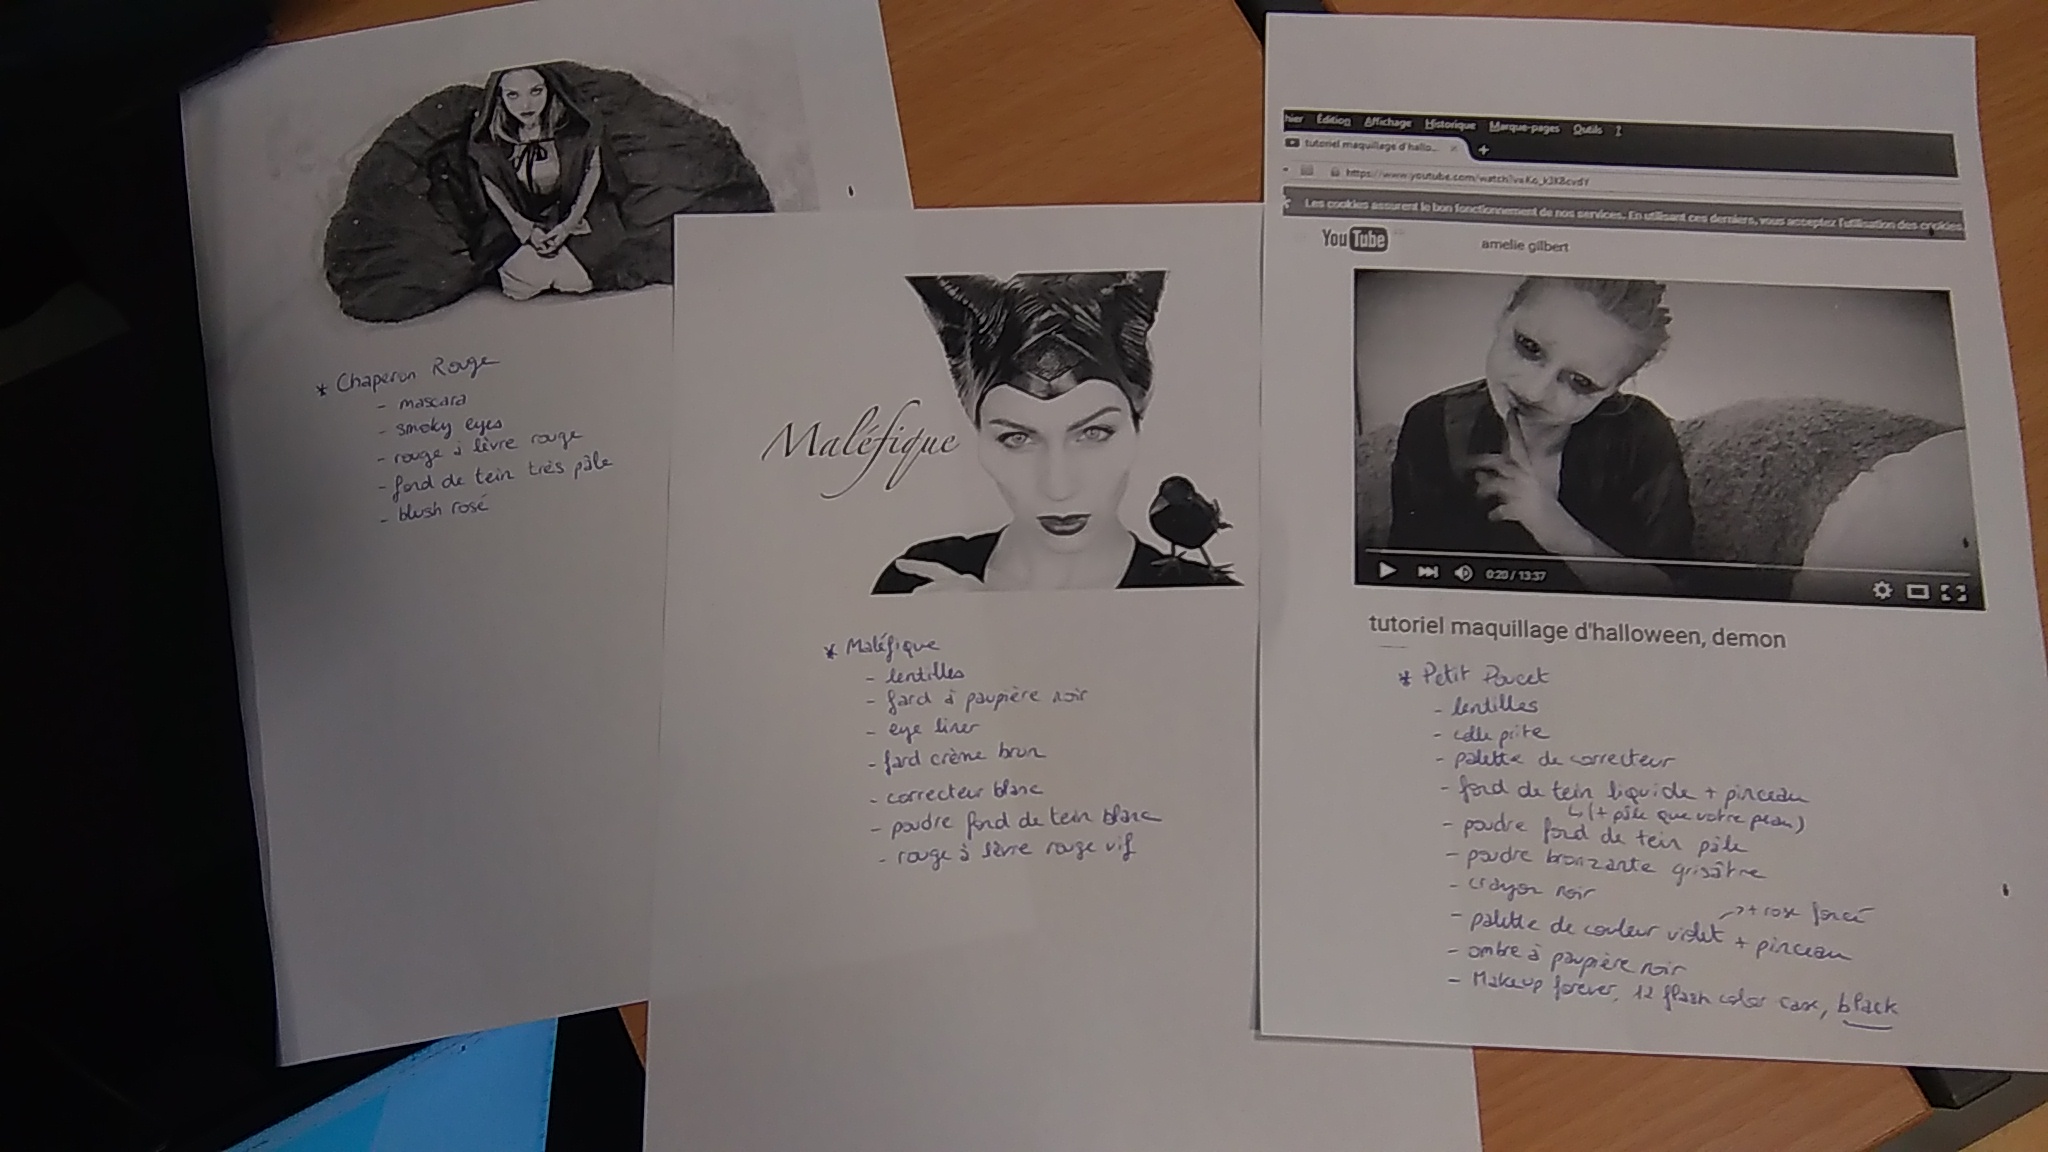 * Chaperon Rouge
- mascara
- smoky eyes
- rouge à lèvre rouge
- fond de tein très pâle
- blush rosé
Maléfique
* Maléfique
- lentilles
- fard à paupière noir
- eye liner
- fard crème brun
- correcteur blanc
- poudre fond de tein blanc
- rouge à lèvre rouge vif
hier Édition Affichage Historique Marque-pages Outils ?
tutoriel maquillage d'hallo... × +
https://www.youtube.com/watch?v=
Les cookies assurent le bon fonctionnement de nos services. En utilisant ces derniers, vous acceptez l'utilisation des cookies
YouTube amelie gilbert
0:20 / 13:37
tutoriel maquillage d'halloween, demon
* Petit Poucet
- lentilles
- colle
- palette de correcteur
- fond de tein liquide + pinceau
↳ (+ pâle que votre peau)
- poudre fond de tein pâle
- poudre bronzante grisâtre
- crayon noir
→ + rose foncé
- palette de couleur violet + pinceau
- ombre à paupière noir
- Makeup forever, 12 flash color case, black